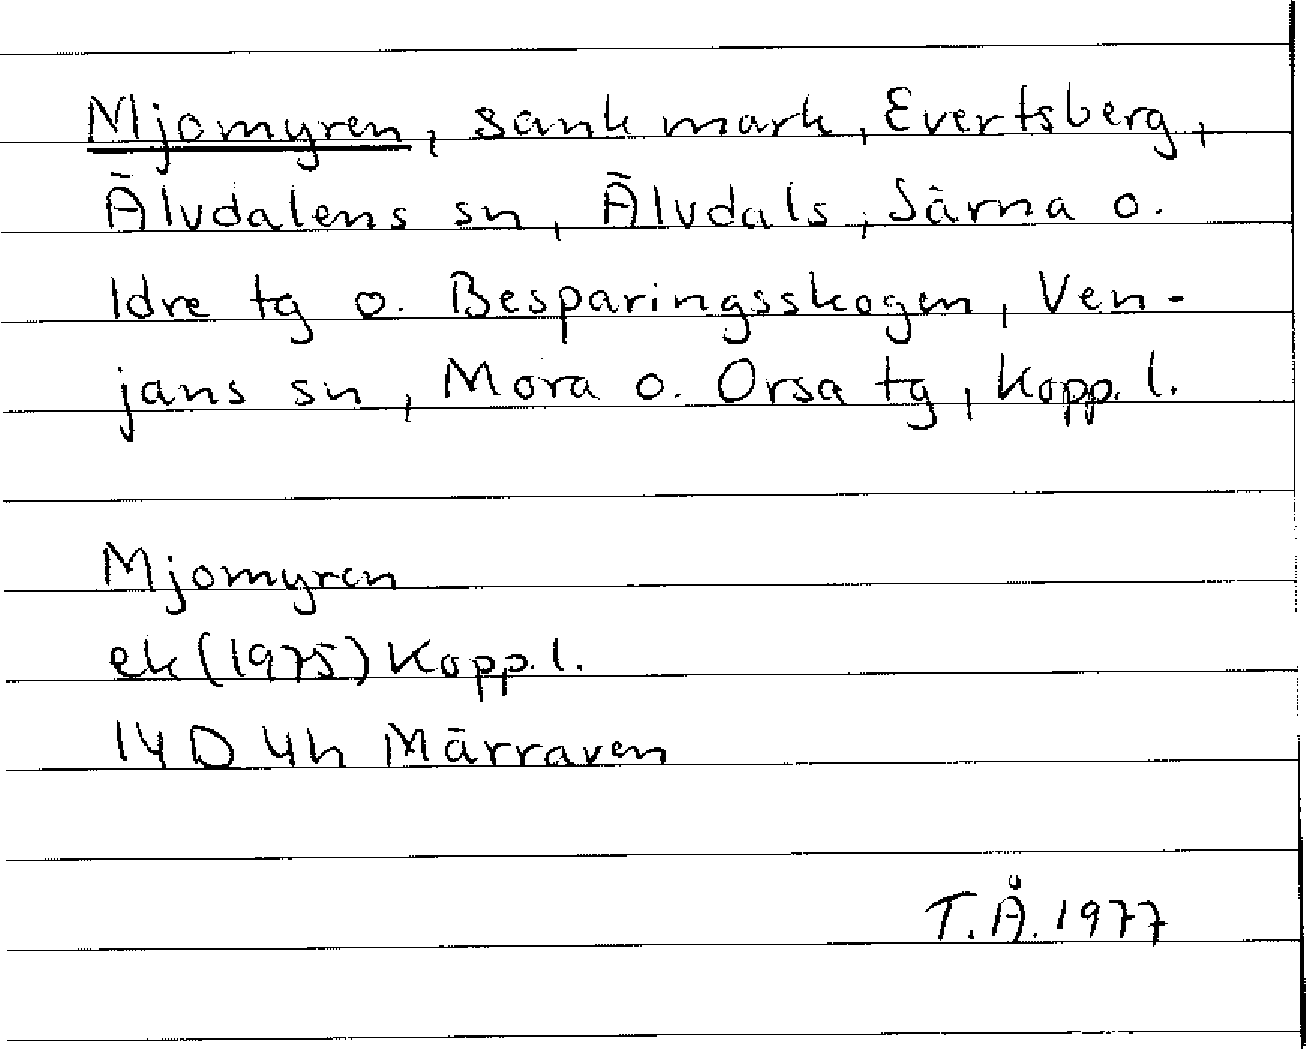 Mjomyren, sank mark, Evertsberg,
Älvdalens sn, Älvdals, Särna o.
Idre tg o. Besparingsskogen, Ven-
jans sn, Mora o. Orsa tg, Kopp. l.
Mjomyren
ek (1975) Kopp. l.
14 D 4h Märraven
T. Å. 1977